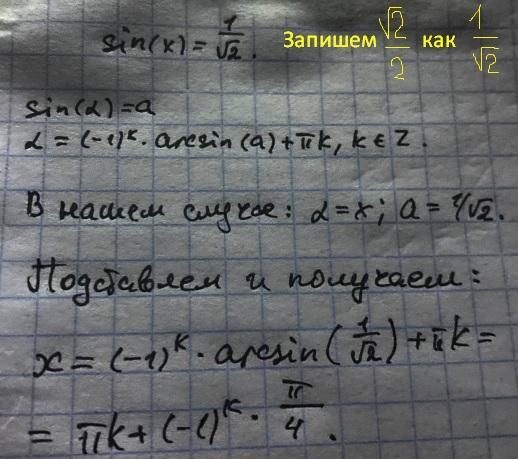 sin(x) = 1/√2. Запишем √2/2 как 1/√2
sin(α) = a
α = (-1)^k · arcsin(a) + πk, k ∈ Z.
В нашем случае: α = x; a = 1/√2.
Подставляем и получаем:
x = (-1)^k · arcsin(1/√2) + πk =
= πk + (-1)^k · π/4.